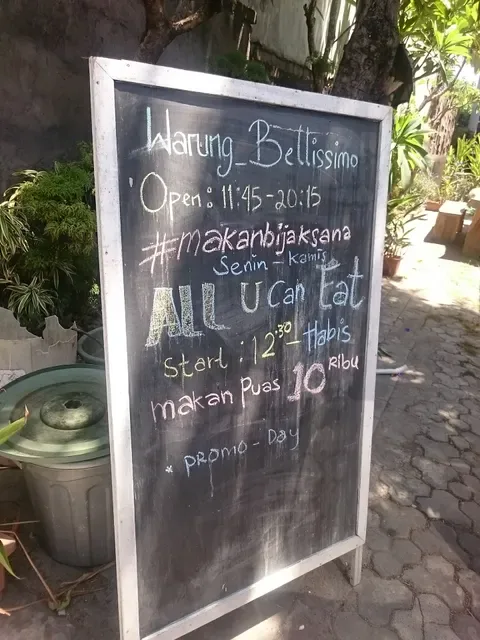 Warung_Bellissimo
Open: 11:45-20:15
#makanbijaksana
Senin - Kamis
ALL U Can Eat
Start : 12:30 - Habis
makan Puas 10 Ribu
* Promo - Day